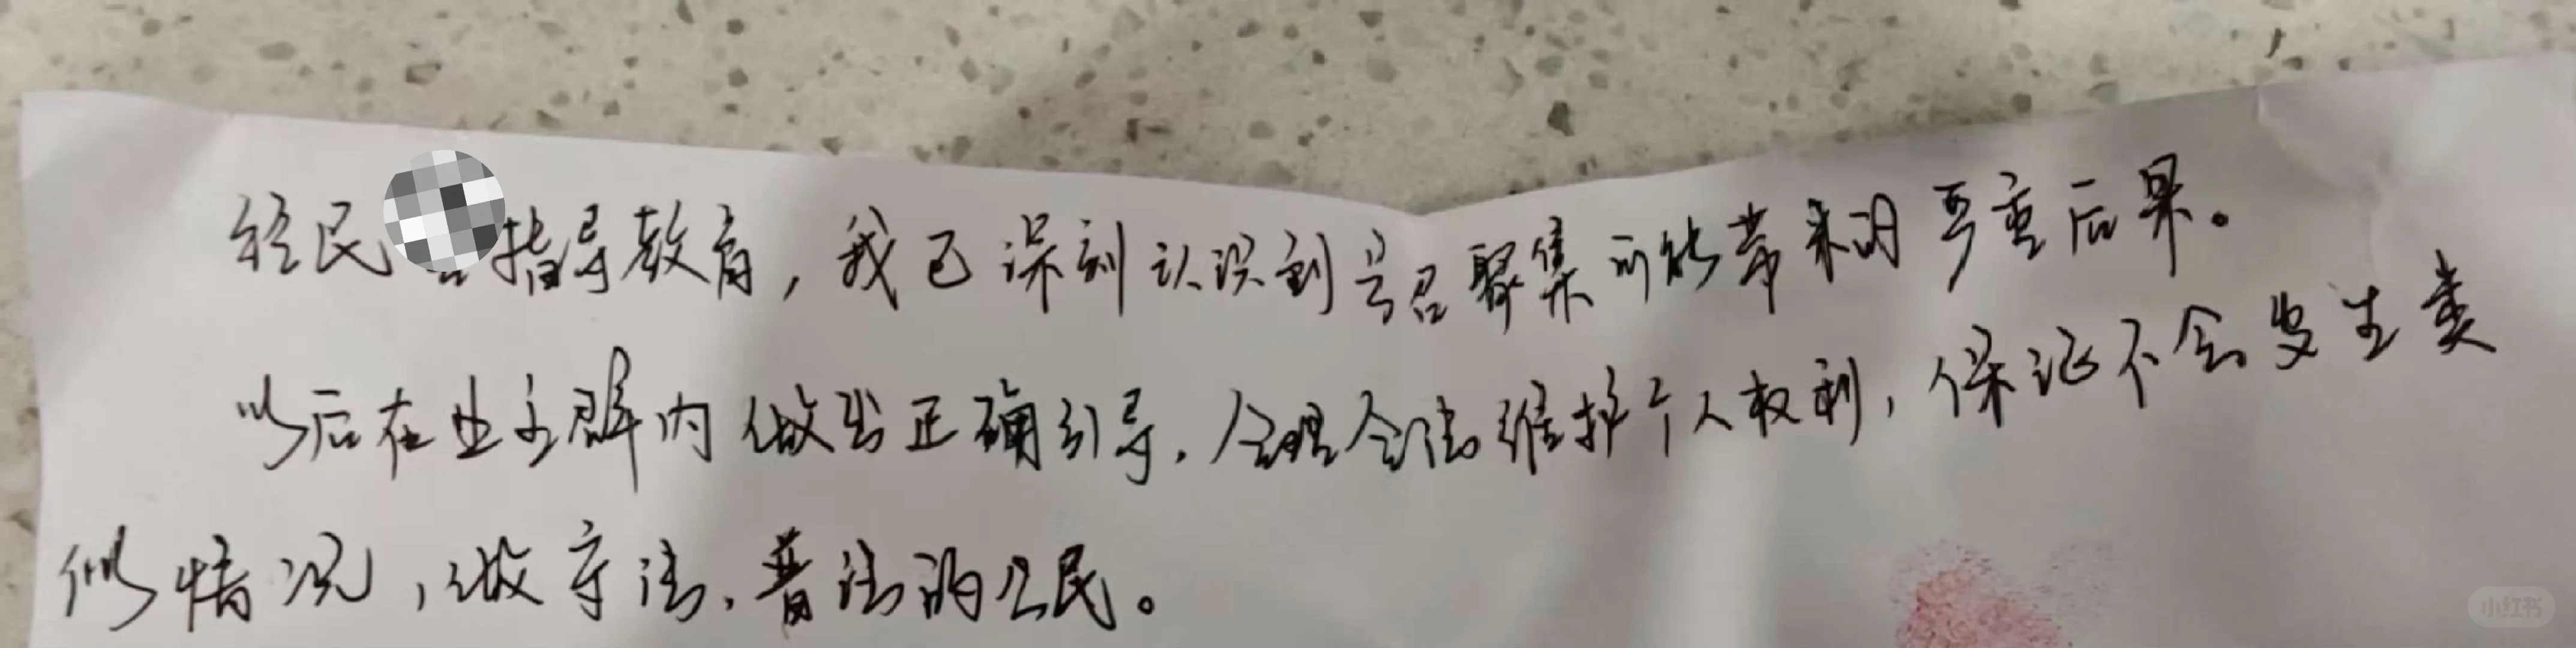 经民指导教育，我已深刻认识到号召聚集可能带来的严重后果。
以后在业主群内做出正确引导，合理合法维护个人权利，保证不会发生类
似情况，做守法、普法的公民。
小红书